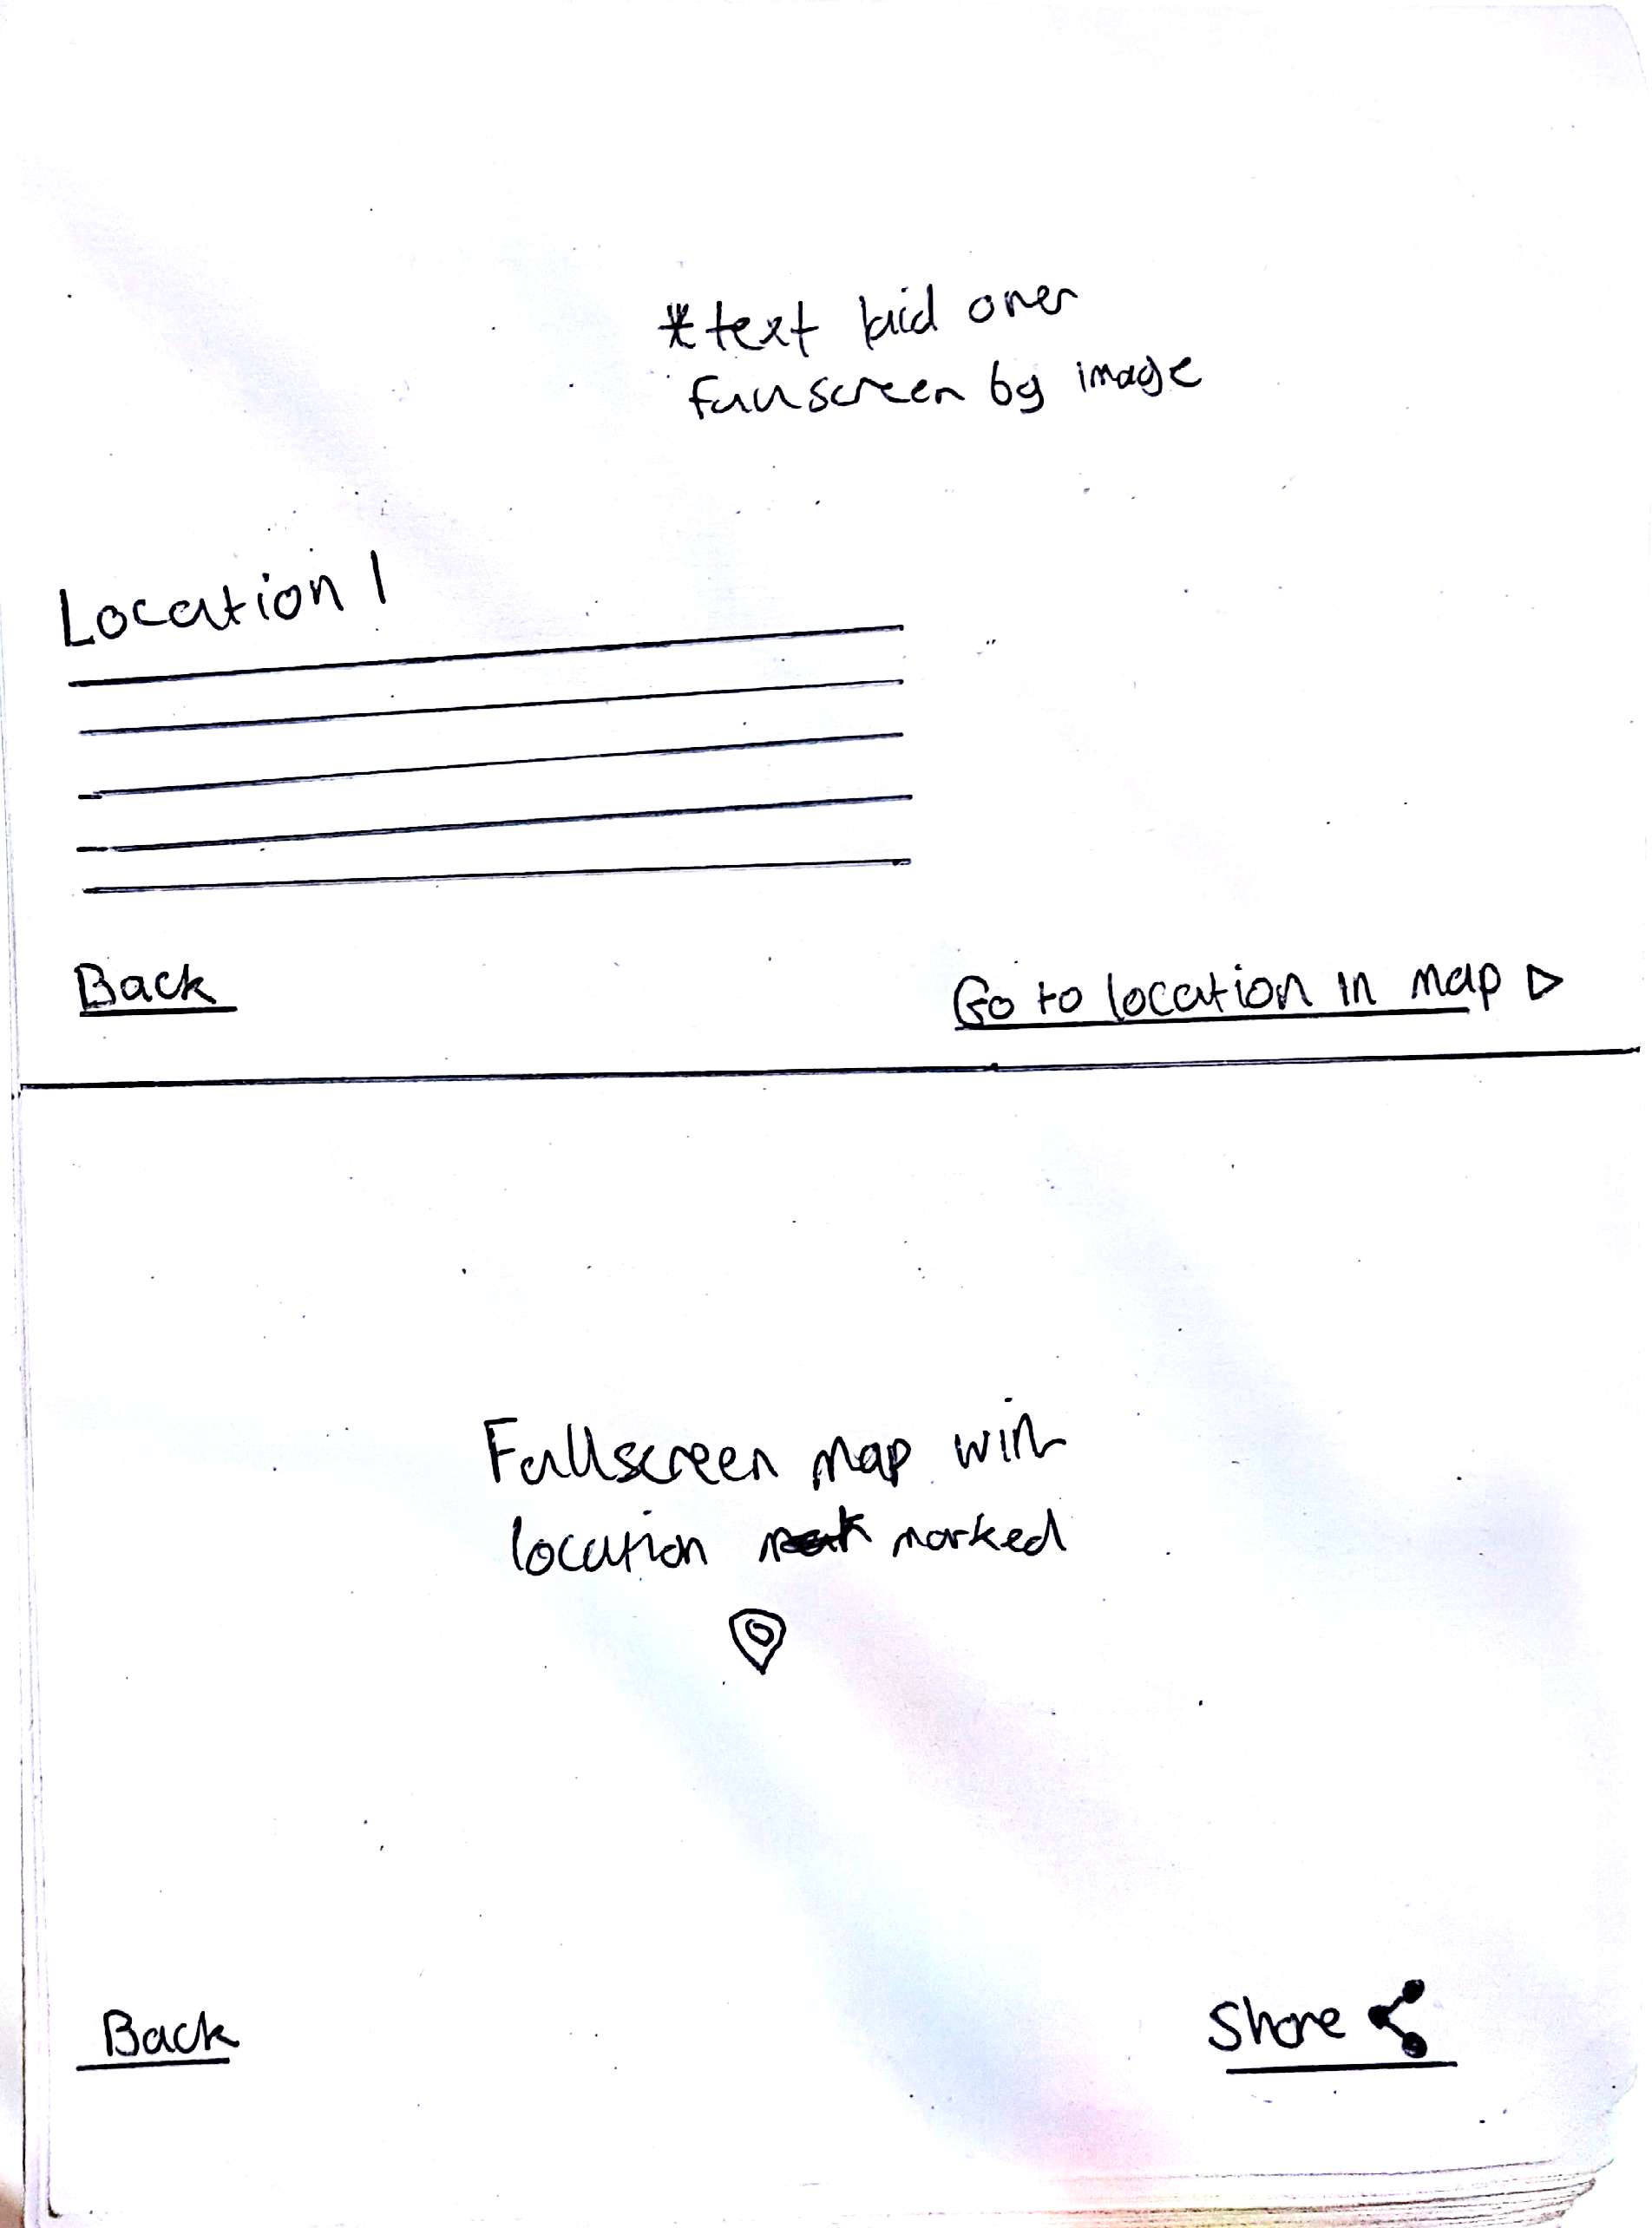 *text laid over
fullscreen bg image
Location 1
Back
Go to location in map
Fullscreen map with
location marked
Back
Share